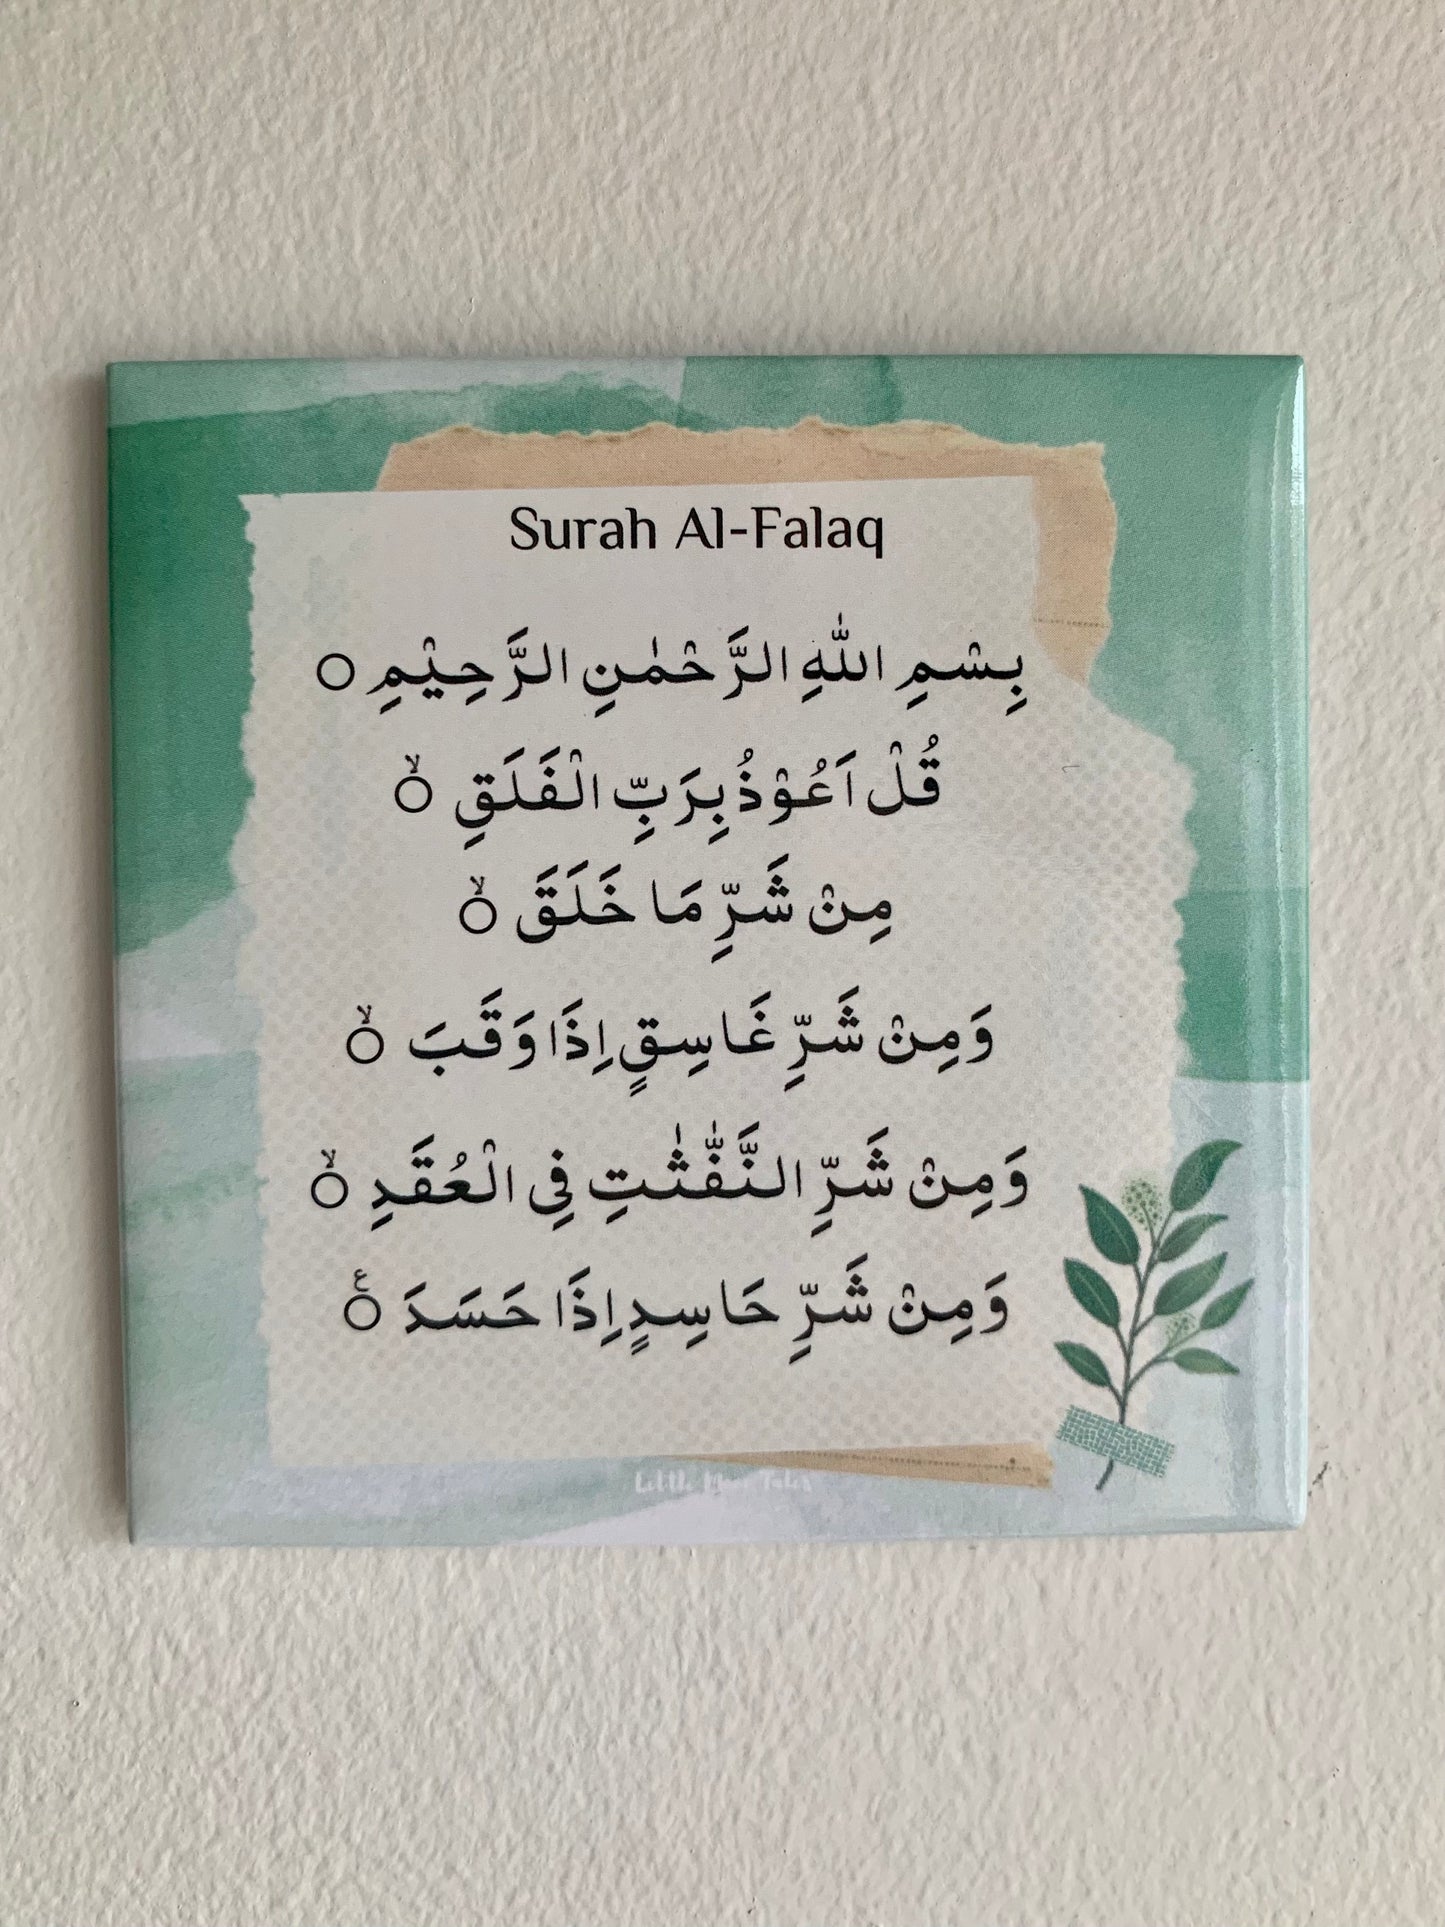 Surah Al-Falaq
بِسْمِ اللّٰهِ الرَّحْمٰنِ الرَّحِيْمِ ۝
قُلْ اَعُوْذُ بِرَبِّ الْفَلَقِ ۝ۙ
مِنْ شَرِّ مَا خَلَقَ ۝ۙ
وَمِنْ شَرِّ غَاسِقٍ اِذَا وَقَبَ ۝ۙ
وَمِنْ شَرِّ النَّفّٰثٰتِ فِى الْعُقَدِ ۝ۙ
وَمِنْ شَرِّ حَاسِدٍ اِذَا حَسَدَ ۝ࣖ
Little Moon Tales